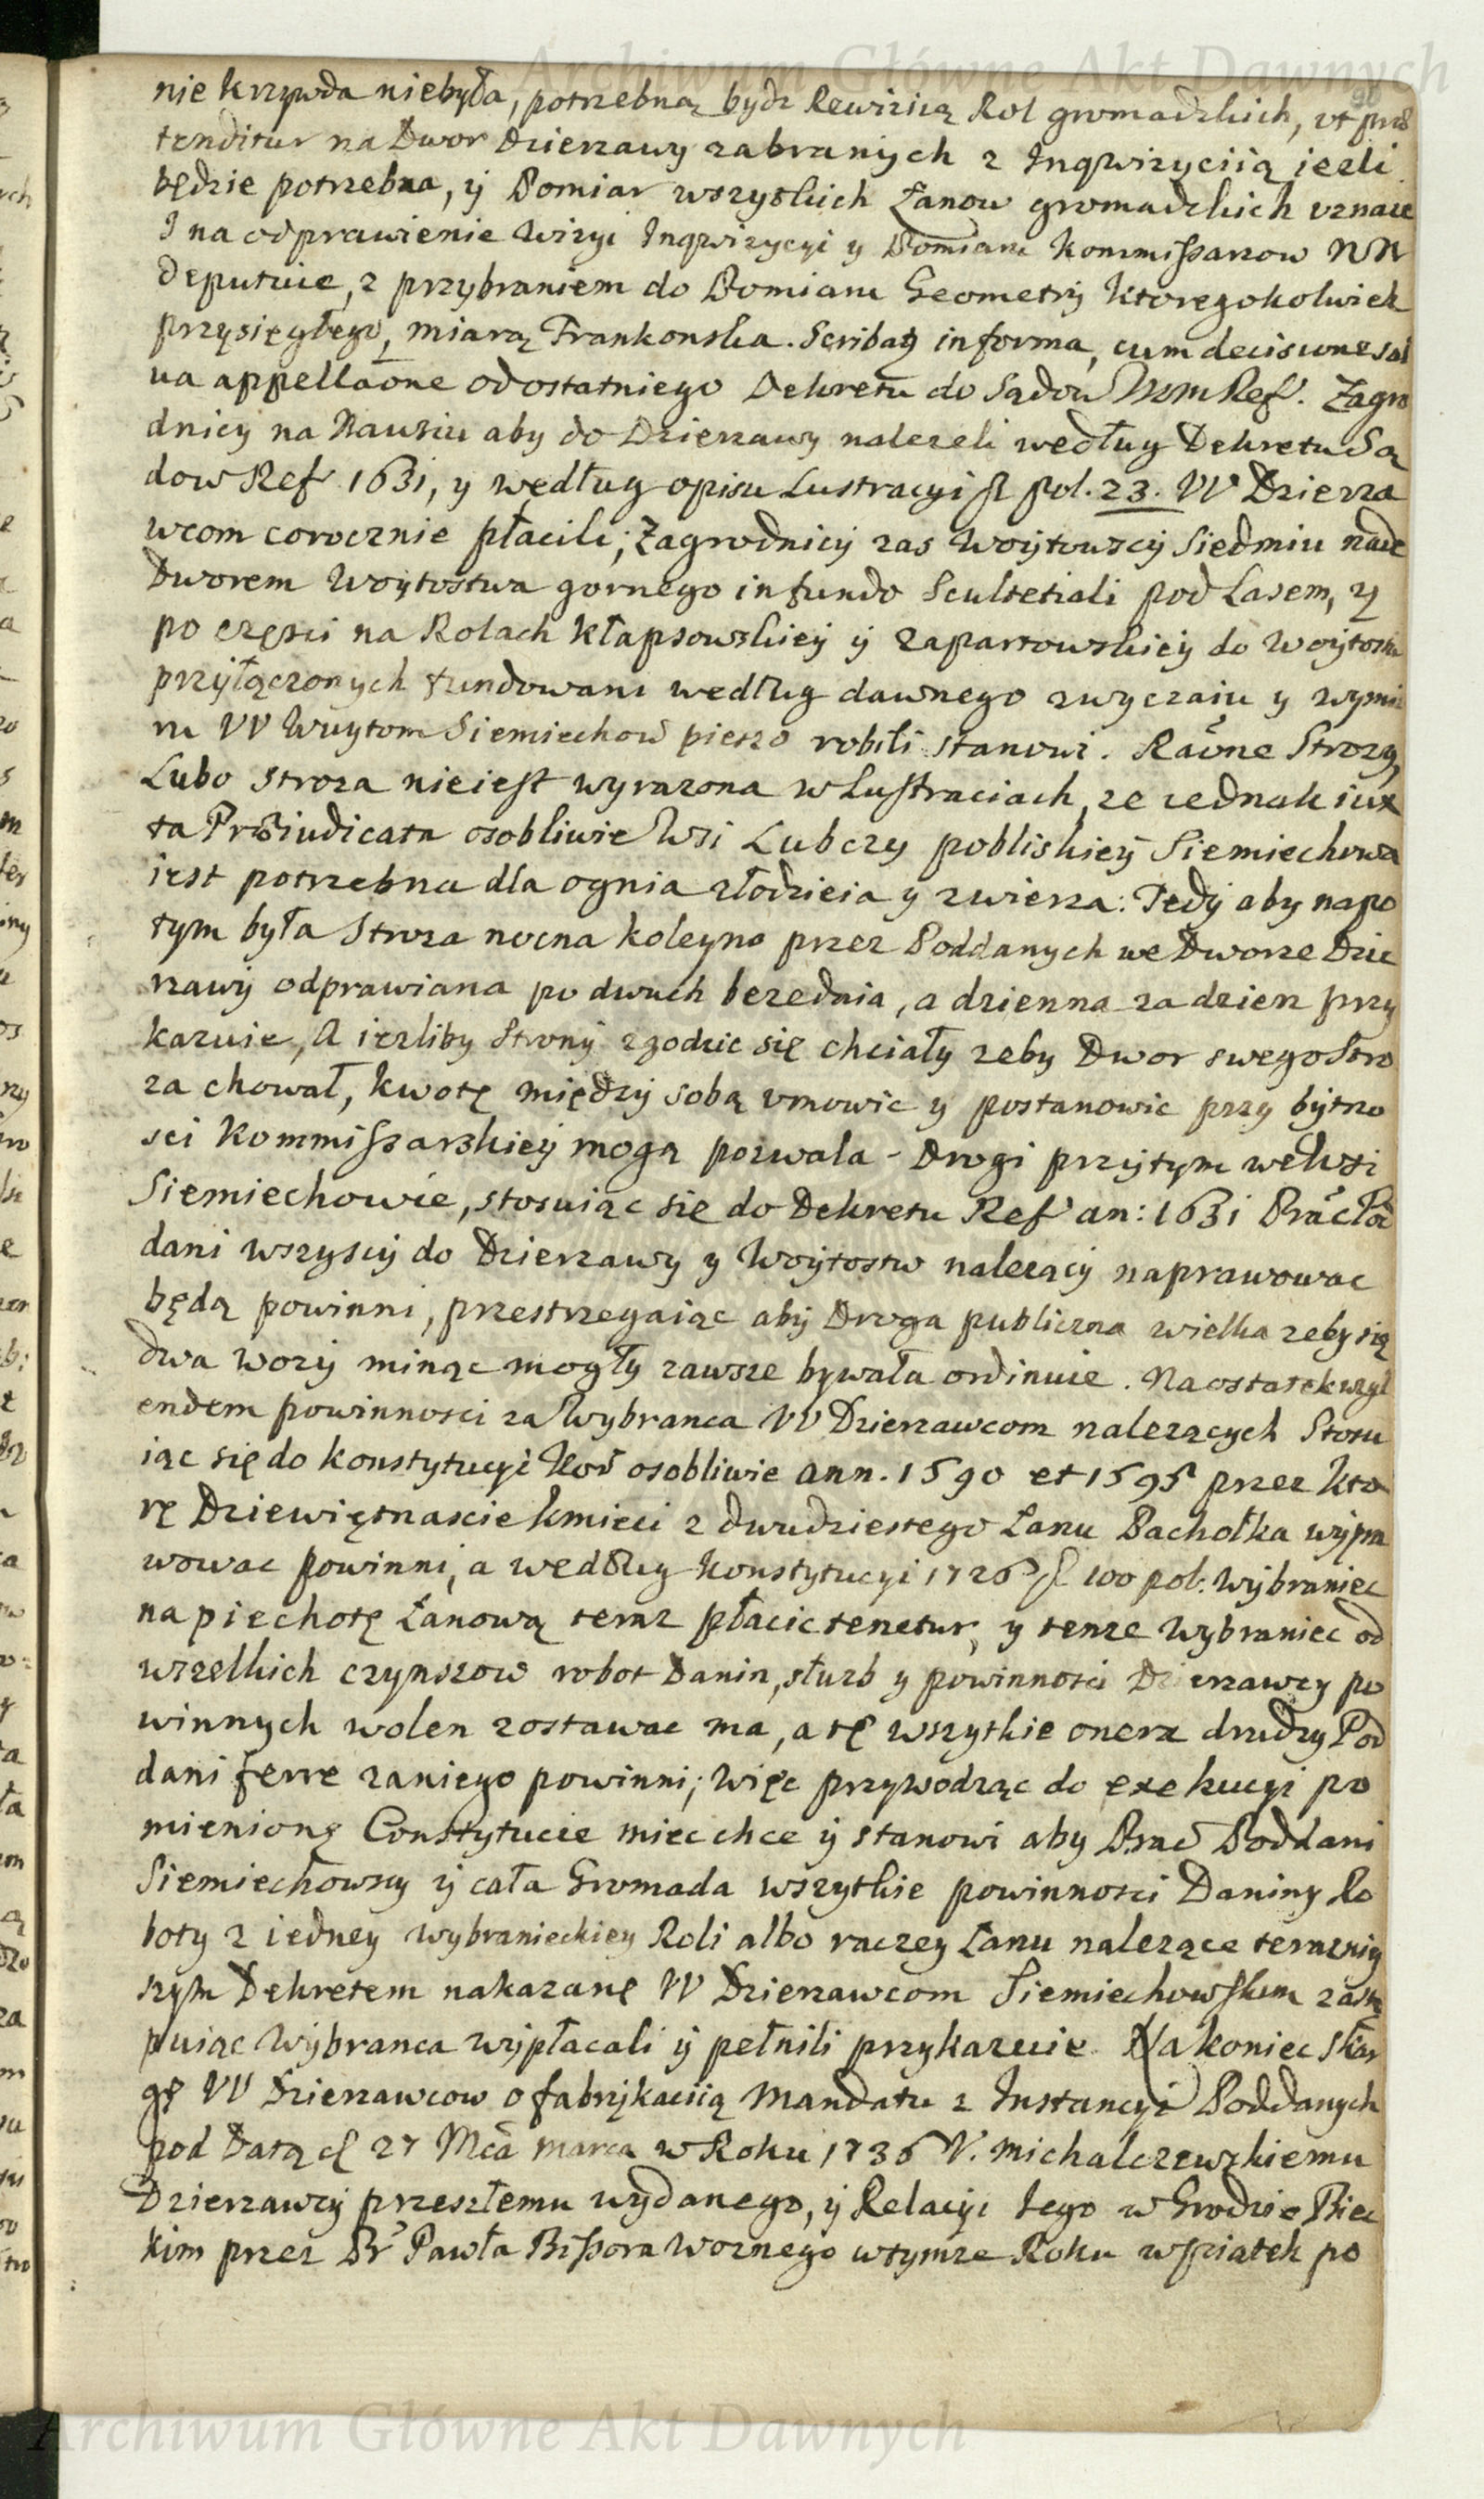 Archiwum Główne Akt Dawnych
nie krzywda niebyła, potrzebną bydz Rewizią Rol gromadzkich, vt præ
tenditur na Dwor Dzierzawy zabranych z Inqwizyciią iezli
będzie potrzebna, ÿ Pomiar wszyskich Łanow gromadzkich vznaie
I na odprawienie Wizyi Inqwizycyi y Pomiaru Kommissarzow NN
deputuie, z przybraniem do Pomiaru Geometrÿ ktoregokolwiek
przysięgłego, miarą Frankonska. Scribatʒ in forma, cum decisione sal
ua appellaone odostatniego Dekretu do Sądow Nrom Ref. Zagro
dnicy na Nawsiu aby do Dzierzawy nalezeli według Dekretu Są
dow Ref 1631, y według opisu Lustracyi fl pol. 23. W Dzierza
wcom corocznie płacili; Zagrodnicÿ zas Woÿtowscÿ Siedmiu nade
Dworem Woÿtostwa gornego in fundo Scultetiali pod Lasem, ÿ
po części na Rolach Kłapsowskieÿ ÿ Zapartowskieÿ do Woÿtostw
przÿłączonych fundowani według dawnego zwyczaiu y wymia
ru W Wuytom Siemiechow pieszo robili stanowi. Raõne Strozy,
Lubo stroza nieiest wyrazona w Lustraciach, ze iednak iux
ta Præiudicata osobliwie Wsi Lubczy pobliskieÿ Siemiechowa
iest potrzebna dla ognia złodzieia y zwierza: Tedÿ aby napo
tym była Stroza nocna koleyno przez Poddanych we Dworze Dzie
rzawÿ odprawiana po dwuch bezednia, a dzienna za dzien przy
kazuie, A iezliby Stronÿ zgodzic się chciały zeby Dwor swego Stro
za chował, kwotę międzÿ sobą vmowic y postanowic przy bÿtno
sci Kommissarskieÿ mogą pozwala - Drogi przÿtym we Wsi
Siemiechowie, stosuiąc się do Dekretu Ref an: 1631 Prac Pod
dani wszyscÿ do Dzierzawy y Woÿtostw nalezącÿ naprawowac
będą powinni, przestrzegaiąc abÿ Droga publiczna wielka zeby się
dwa wozÿ minąc mogłÿ zawsze bywała ordinuie. Na ostatek wzgl
endem powinnosci za Wybranca W Dzierzawcom nalezących Stosu
iąc się do konstytucyi Kor osobliwie ann. 1590 et 1595 przez kto
rę Dziewiętnascie kmieci z dwudziestego Łanu Pachołka wÿpra
wowac powinni, a według konstytucyi 1726 fl 100 pol: Wÿbraniec
na piechotę Łanową teraz płacic tenetur, y tenze Wybraniec od
wszelkich czynszow robot Danin, słuzb y powinnosci Dzierzawcy po
winnych wolen zostawac ma, a tę wszytkie onera drudzy Pod
dani ferre zaniego powinni; Więc przywodząc do exekucyi po
mienionę Constytucie miec chce ÿ stanowi aby Prac Poddani
Siemiechowscy ÿ cała Gromada wszytkie powinnosci Daniny Ro
boty z iedney wybranieckiey Roli albo raczey Łanu nalezące teraznię
szym Dekretem nakazanę W Dzierzawcom Siemiechowskim zastę
puiąc Wÿbranca wÿpłacali ÿ pełnili przykazuie. Na koniec Skar
gę W Dzierzawcow o fabrÿkaciią Mandatu z Instancyi Poddanych
pod Datą d 27 Mca marca w Roku 1736 V. Michalczewskiemu
Dzierzawcÿ przeszłemu wÿdanego, ÿ Relacÿi tego w Grodzie Biec
kim przez Pr Pawła Bissora Woznego wtymze Roku w piątek po
Archiwum Główne Akt Dawnych